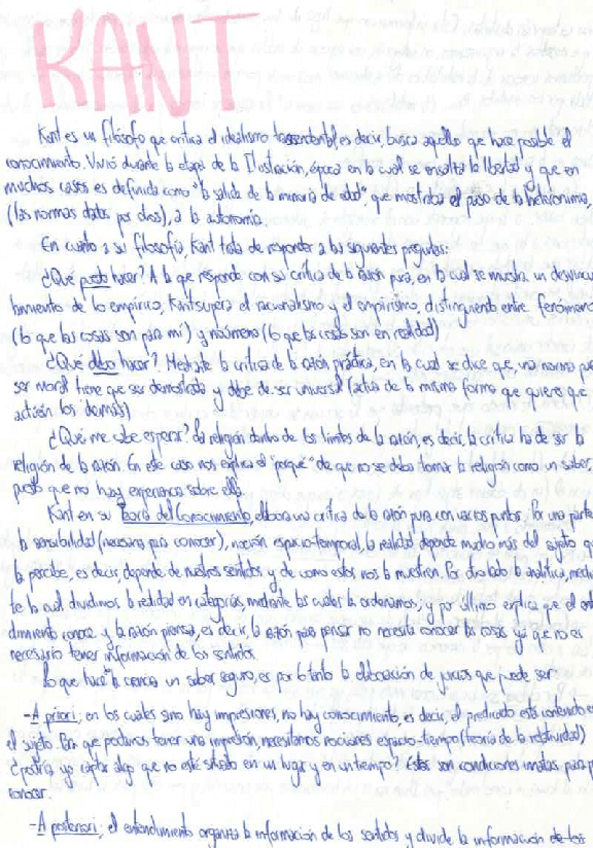 KANT
Kant es un filósofo que critica el idealismo trascendental, es decir, busca aquello que hace posible el
conocimiento. Vivió durante la etapa de la Ilustración, época en la cual se ensalta la libertad y que en
muchos casos es definida como "la salida de la minoría de edad", que mostraba el paso de la heterónima,
(las normas dadas por dios), a la autonomía.
En cuanto a su filosofía, Kant trata de responder a las siguientes preguntas:
¿Qué puedo hacer? A la que responde con su crítica de la razón pura, en la cual se muestra un desvincu
lamiento de lo empírico, Kant supera el racionalismo y el empirismo, distinguiendo entre fenómeno
(lo que las cosas son para mí) y noúmeno (lo que las cosas son en realidad)
¿Qué debo hacer? Mediante la crítica de la razón práctica, en la cual se dice que, una norma para
ser moral tiene que ser demostrada y debe de ser universal (actúa de la misma forma que quieres que
actúen los demás)
¿Qué me cabe esperar? La religión dentro de los límites de la razón, es decir, la crítica ha de ser la
religión de la razón. En este caso nos explica el "porqué" de que no se deba tomar la religión como un saber,
puesto que no hay experiencia sobre ella.
Kant en su Teoría del Conocimiento, elabora una crítica de la razón pura con varios puntos, Por una parte
la sensibilidad (necesaria para conocer), noción espacio-temporal, la realidad depende mucho más del sujeto que
la percibe, es decir, depende de nuestros sentidos y de como estos nos la muestran. Por otro lado la analítica, media
te la cual dividimos la realidad en categorías, mediante las cuales la ordenamos, y por último explica que el ent
dimiento conoce y la razón piensa, es decir, la razón para pensar no necesita conocer las cosas ya que no es
necesario tener información de los sentidos.
Lo que hará la ciencia un saber seguro, es por lo tanto la elaboración de juicios que puede ser
-A priori; en los cuales si no hay impresiones, no hay conocimiento, es decir, el predicado está contenido en
el sujeto. Para que podamos tener una impresión, necesitamos nociones espacio-tiempo (teoría de la relatividad)
¿podría yo captar algo que no esté situado en un lugar y en un tiempo? Estas son condiciones innatas para p
conocer.
-A posteriori; el entendimiento organiza la información de los sentidos y divide la información de los